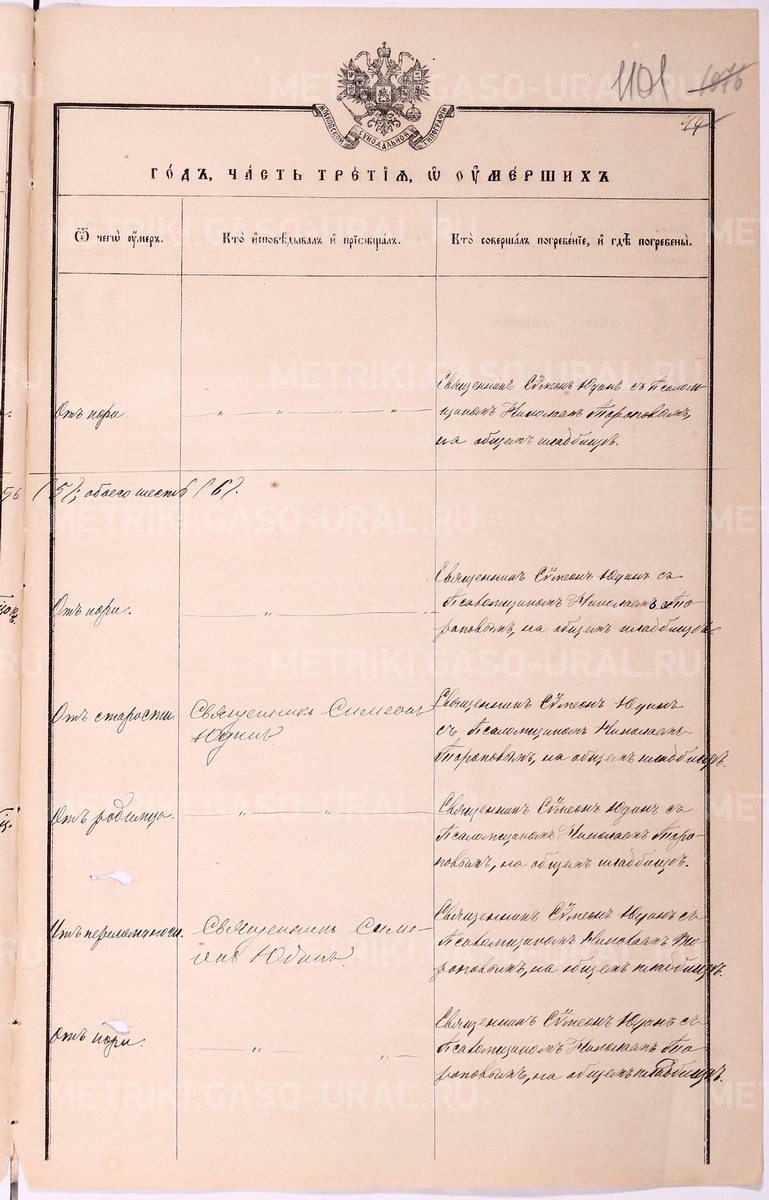 1101 1076
МОСКОВСКОЙ СУНОДАЛЬНОЙ ТИПОГРАФІИ
ГОДЪ, ЧАСТЬ ТРЕТІѦ, Ѡ ОУМЕРШИХЪ
Ѿ чегѡ оумеръ.
Кто исповѣдывалъ и пріѡбщалъ.
Кто совершалъ погребеніе, и гдѣ погребены.
Отъ кори.
Священникъ Сѵмеонъ Юдинъ съ Псалом-
щикомъ Николаемъ Тороповымъ,
на общемъ кладбищѣ.
56
(5); обоего шесть (6).
Отъ кори.
Священникъ Сѵмеонъ Юдинъ съ
Псаломщикомъ Николаемъ То-
роповымъ, на общемъ кладбищѣ.
Отъ старости
Священникъ Симеонъ
Юдинъ
Священникъ Сѵмеонъ Юдинъ
съ Псаломщикомъ Николаемъ
Тороповымъ, на общемъ кладбищѣ.
Отъ родимца.
Священникъ Сѵмеонъ Юдинъ съ
Псаломщикомъ Николаемъ Торо-
повымъ, на общемъ кладбищѣ.
Священникъ Симе-
онъ Юдинъ.
Священникъ Сѵмеонъ Юдинъ съ
Псаломщикомъ Николаемъ То-
роповымъ, на общемъ кладбищѣ.
Отъ кори.
Священникъ Сѵмеонъ Юдинъ съ
Псаломщикомъ Николаемъ То-
роповымъ, на общемъ кладбищѣ.
METRIKI.GASO-URAL.RU